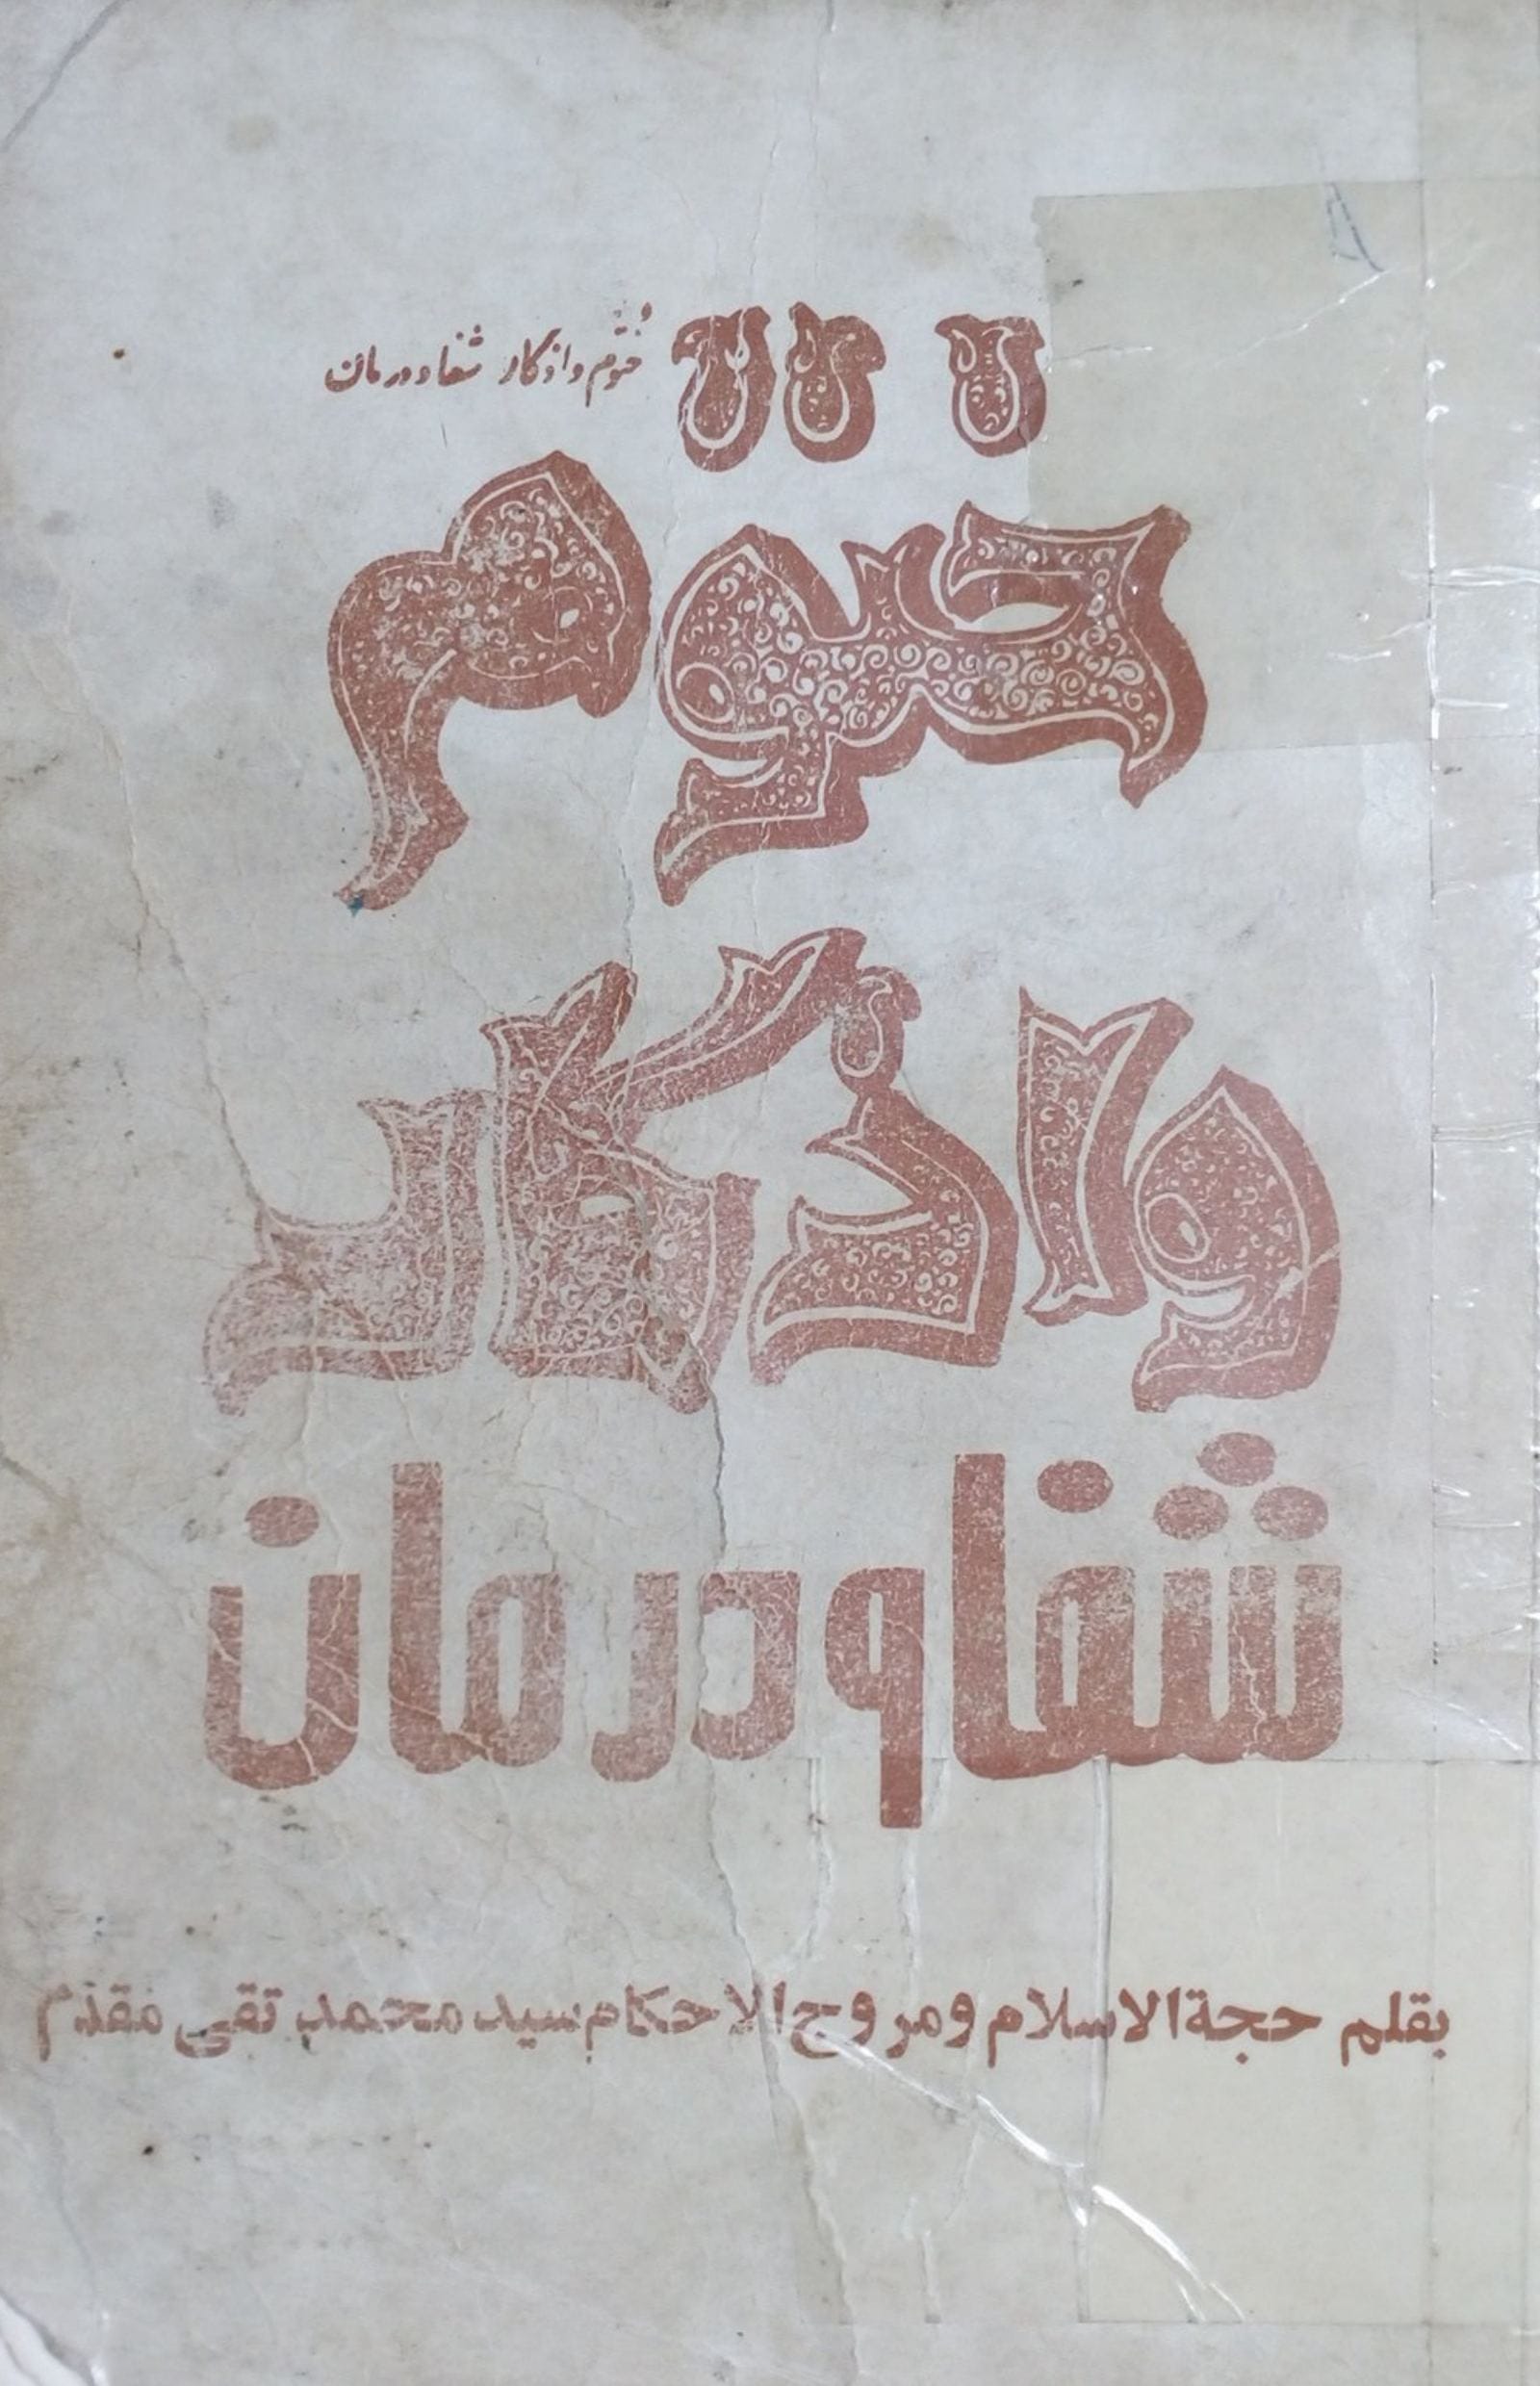 ختوم واذکار شفاودرمان
ختوم
واذکار
شفاودرمان
بقلم حجةالاسلام ومروج الاحکام سید محمد تقی مقدم